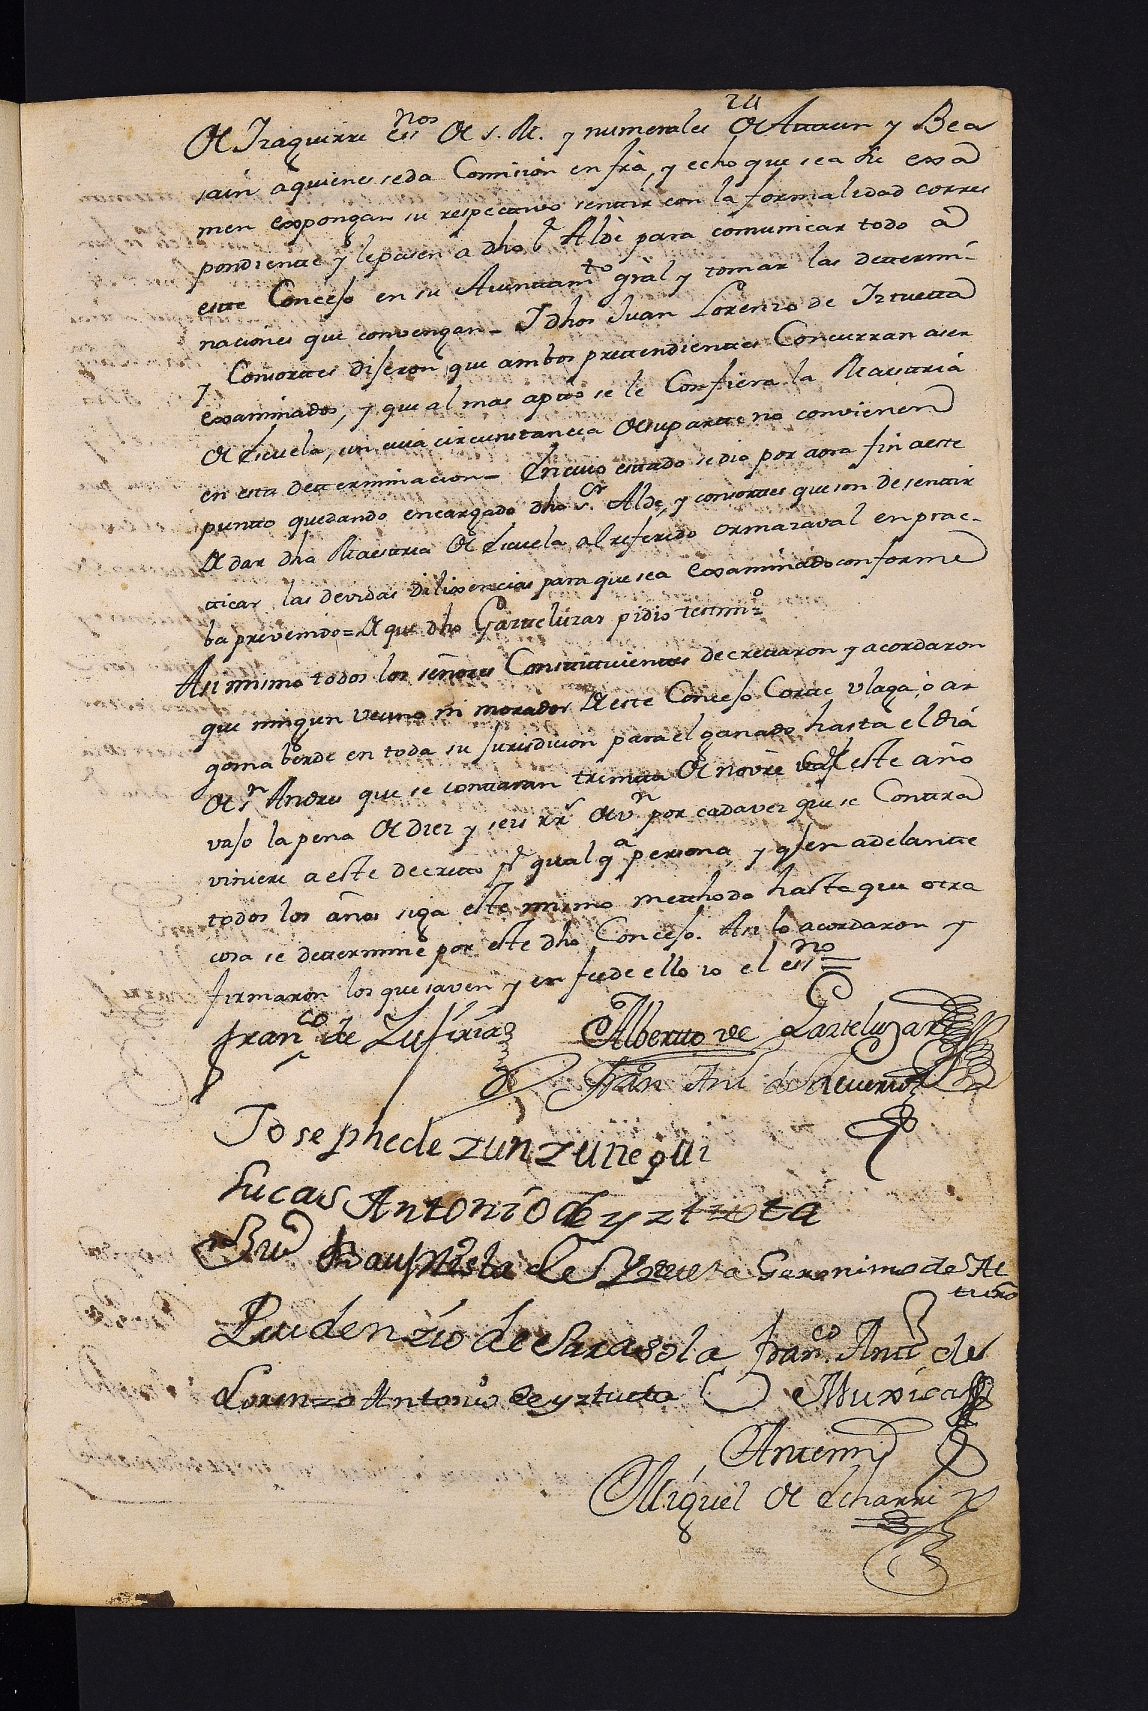 24
de Izaguirre essnos de S. M. y numerales de Ataun y Bea
sain aquienes seda Comision en frã, y echo que sea dho exsa
men expongan su respectivo sentir con la formalidad corres
pondiente y lepasen a dho Sr Aldè para comunicar todo a
este Concejo en su Aiuntamto grãl y tomar las determi-
naciones que convengan - I dhos Juan Lorenzo de Iztuetta
y Consortes dijeron que ambos prettendientes Concurran aser
exsaminados, y que al mas apto se le Confiera la Maestria
de Escuela, sin cuia circunstancia desuparte no convienen
en esta determinacion - En cuio estado se dio por aora fin aeste
punto quedando encargado dho Sr Alde, y consortes que son de sentir
de dar dha Maestria de Escuela al referido ormazaval en prac-
ticar las devidas dilixencias para que sea exsaminado conforme
ba prevenido = de que dho Garteluzar pidio testimo =
Asi mismo todos los señores Constituientes decretaron y acordaron
que ningun vecino ni morador de este Concejo Corte ulaga, ò ar
goma berde en toda su Jurisdicion para el ganado hasta el dia
de Sn Andres que se contaran treinta de novre de este año
vajo la pena de diez y seis rrs de vn por cadavez que se Contra
viniere a este decreto pr qual qa persona, y q en adelante
todos los años siga este mismo methodo hasta que otra
cosa se determine por este dho Concejo. Asi lo acordaron y
firmaron los que saven y en fee de ello io el essno =
Franco de Lusirias Alberto de Garteluzar
Fran Ant de
Joseph de zunzunegui
Lucas Antonio de yztueta
Bauptista de Geronimo de At
Prudenzio de Sarasola Franco Antt de
Lorenzo Antonio de yztueta Muxica
Antemi
Miguel de Echarri